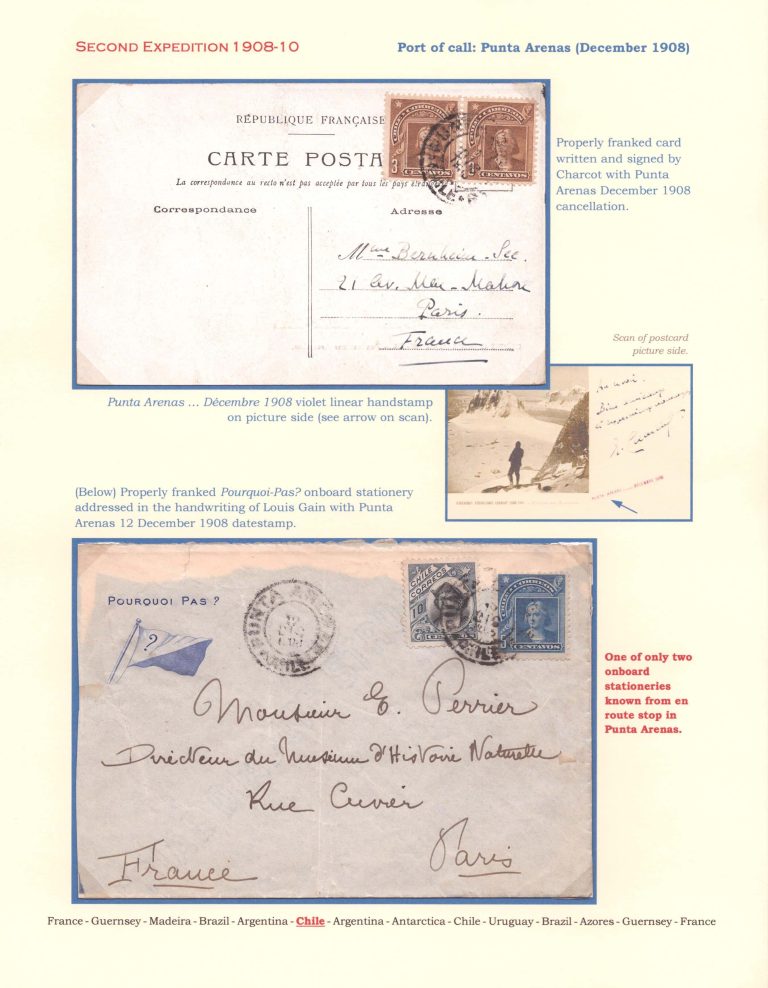 SECOND EXPEDITION 1908-10
Port of call: Punta Arenas (December 1908)
RÉPUBLIQUE FRANÇAISE
CARTE POSTA
La correspondance au recto n'est pas acceptée par tous les pays étran
Correspondance
Adresse
Mme Bernheim-See.
21 Av. Mac-Mahon
Paris.
France
CHILE CORREOS
3 CENTAVOS
CENTAVOS
Properly franked card
written and signed by
Charcot with Punta
Arenas December 1908
cancellation.
Scan of postcard
picture side.
Punta Arenas ... Décembre 1908 violet linear handstamp
on picture side (see arrow on scan).
PUNTA ARENAS DÉCEMBRE 1908
(Below) Properly franked Pourquoi-Pas? onboard stationery
addressed in the handwriting of Louis Gain with Punta
Arenas 12 December 1908 datestamp.
POURQUOI PAS ?
?
PUNTA ARENAS
CHILE
CHILE
CORREOS
10
CENTAVOS
5 CENTAVOS
Monsieur E. Perrier
Directeur du Muséum d'Histoire Naturelle
Rue Cuvier
Paris
France
One of only two
onboard
stationeries
known from en
route stop in
Punta Arenas.
France - Guernsey - Madeira - Brazil - Argentina - Chile - Argentina - Antarctica - Chile - Uruguay - Brazil - Azores - Guernsey - France